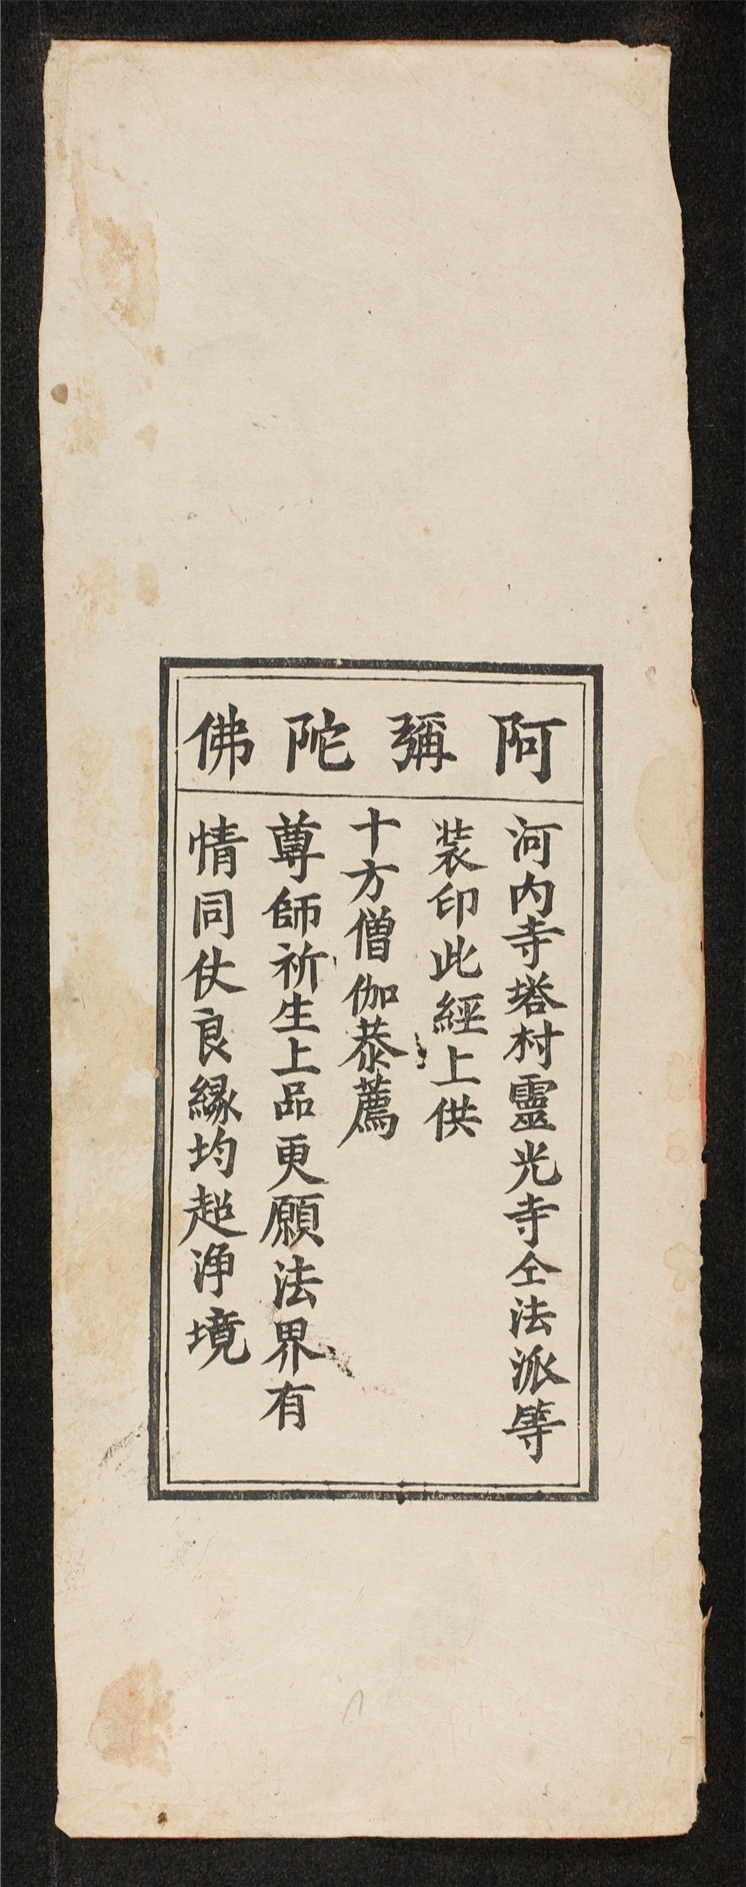 阿彌陀佛
河内寺塔村靈光寺仝法派等
装印此經上供
十方僧伽恭薦
尊師祈生上品更願法界有
情同仗良緣均超浄境